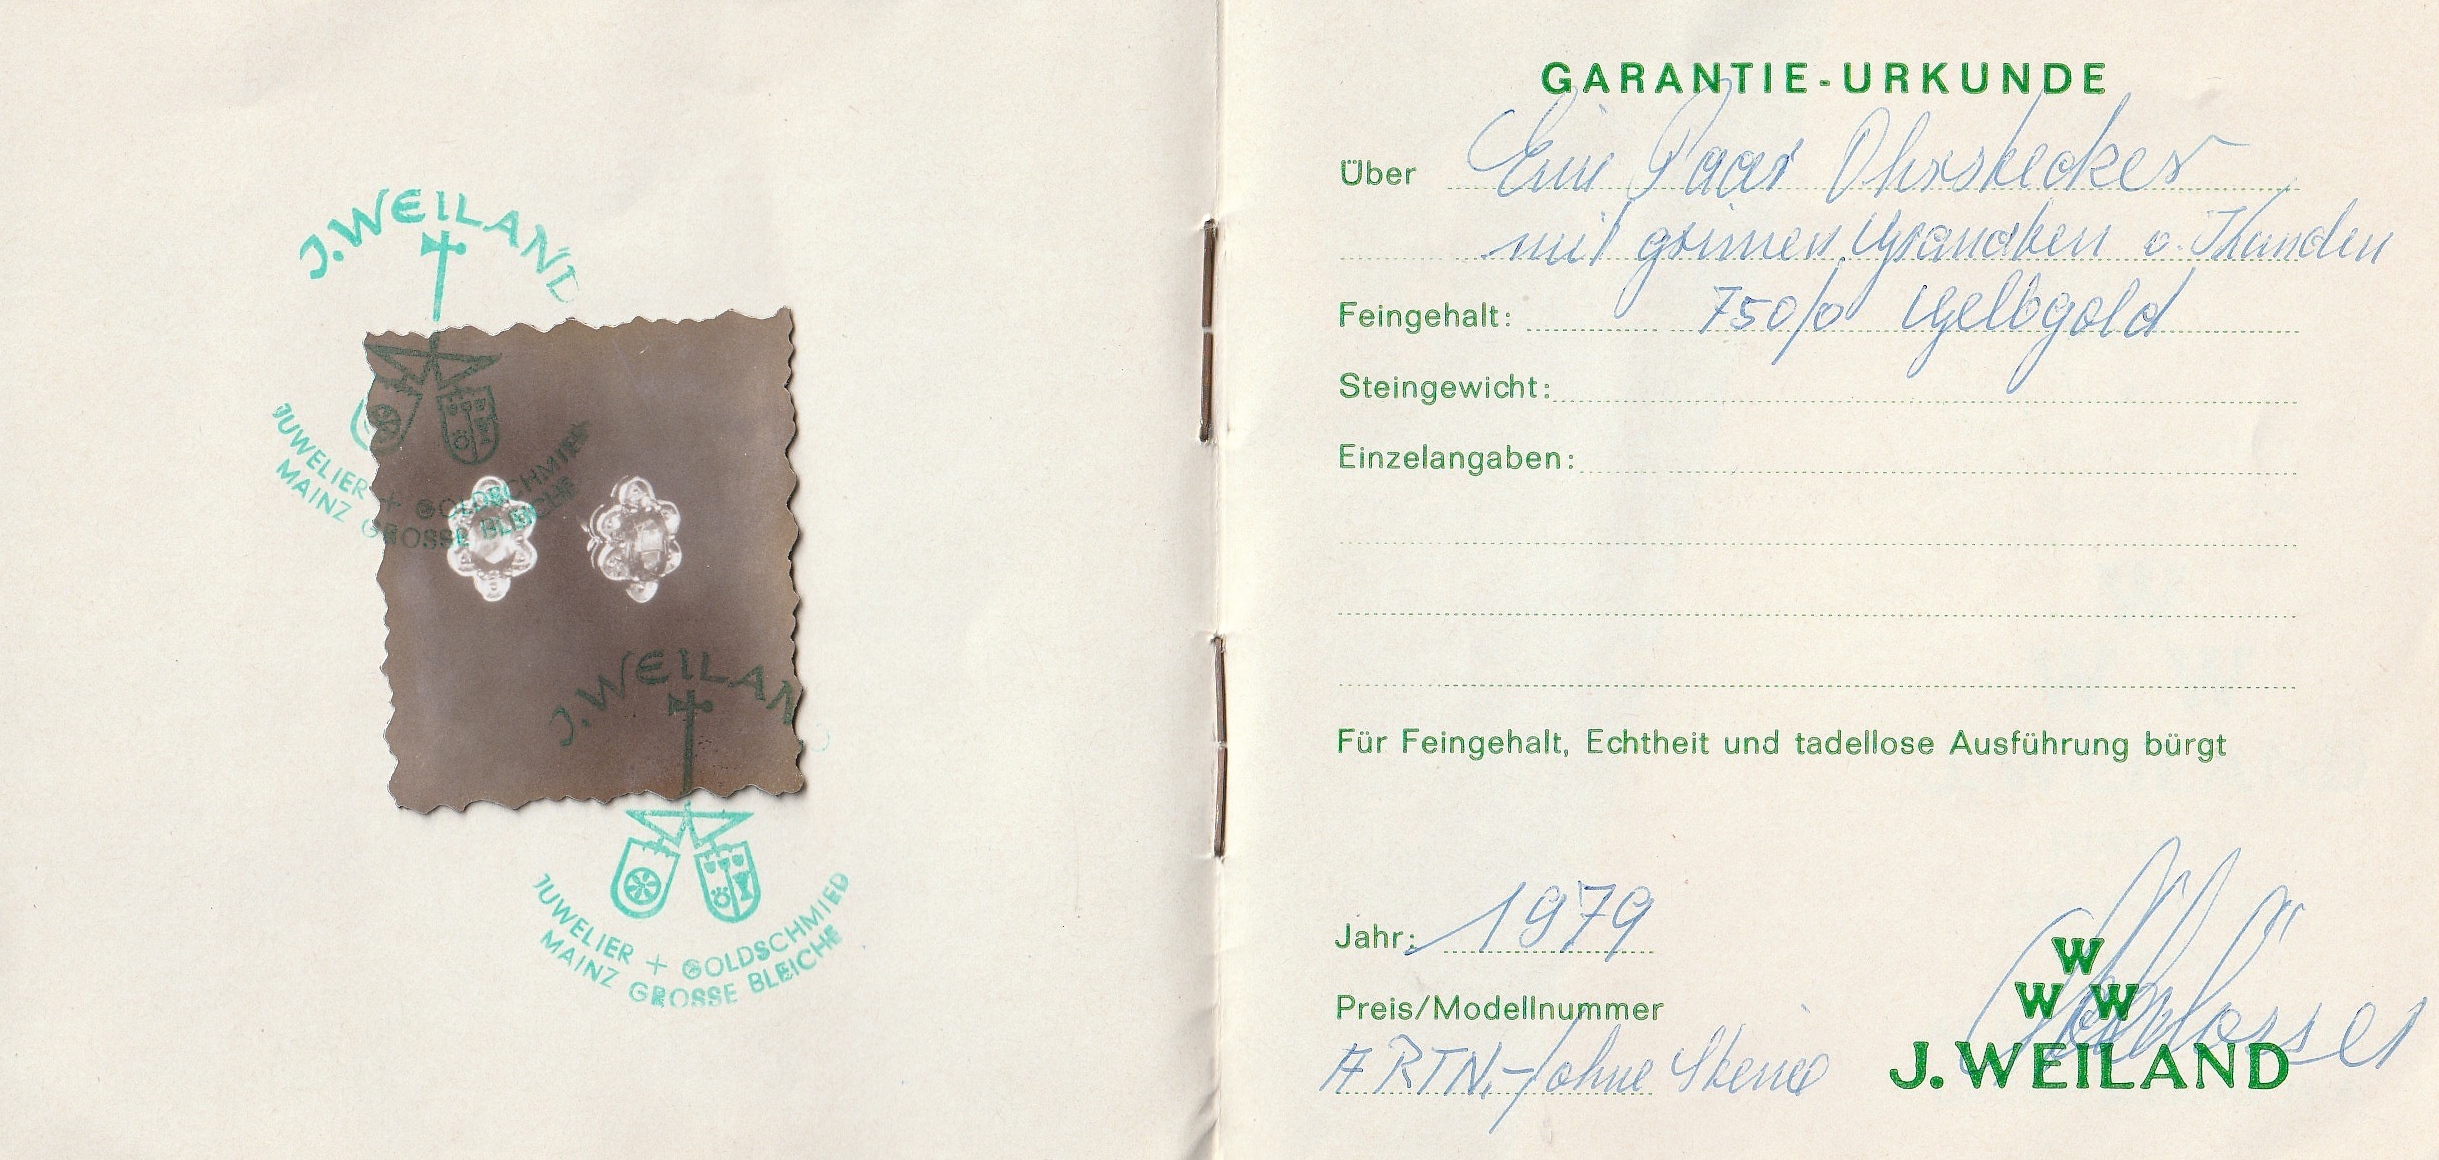 J. WEILAND
JUWELIER + GOLDSCHMIED
MAINZ GROSSE BLEICHE
J. WEILAND
JUWELIER + GOLDSCHMIED
MAINZ GROSSE BLEICHE
GARANTIE-URKUNDE
Über Ein Paar Ohrstecker
mit grünen Granaten v. Kunden
Feingehalt: 750/0 Gelbgold
Steingewicht:
Einzelangaben:
Für Feingehalt, Echtheit und tadellose Ausführung bürgt
Jahr: 1979
Preis/Modellnummer
ohne Steine
W
W W
J. WEILAND